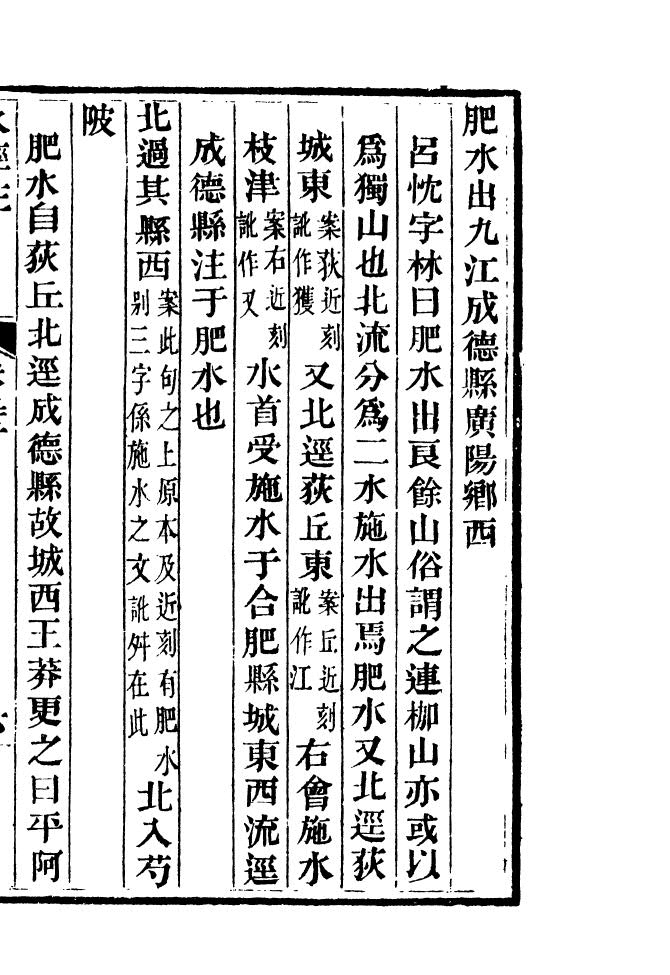 肥水出九江成德縣廣陽鄉西
呂忱字林曰肥水出良餘山俗謂之連枷山亦或以
爲獨山也北流分爲二水施水出焉肥水又北逕荻
城東案荻近刻訛作獲又北逕荻丘東案丘近刻訛作江右會施水
枝津案右近刻訛作又水首受施水于合肥縣城東西流逕
成德縣注于肥水也
北過其縣西案此句之上原本及近刻有肥水别三字係施水之文訛舛在此北入芍
陂
肥水自荻丘北逕成德縣故城西王莽更之曰平阿